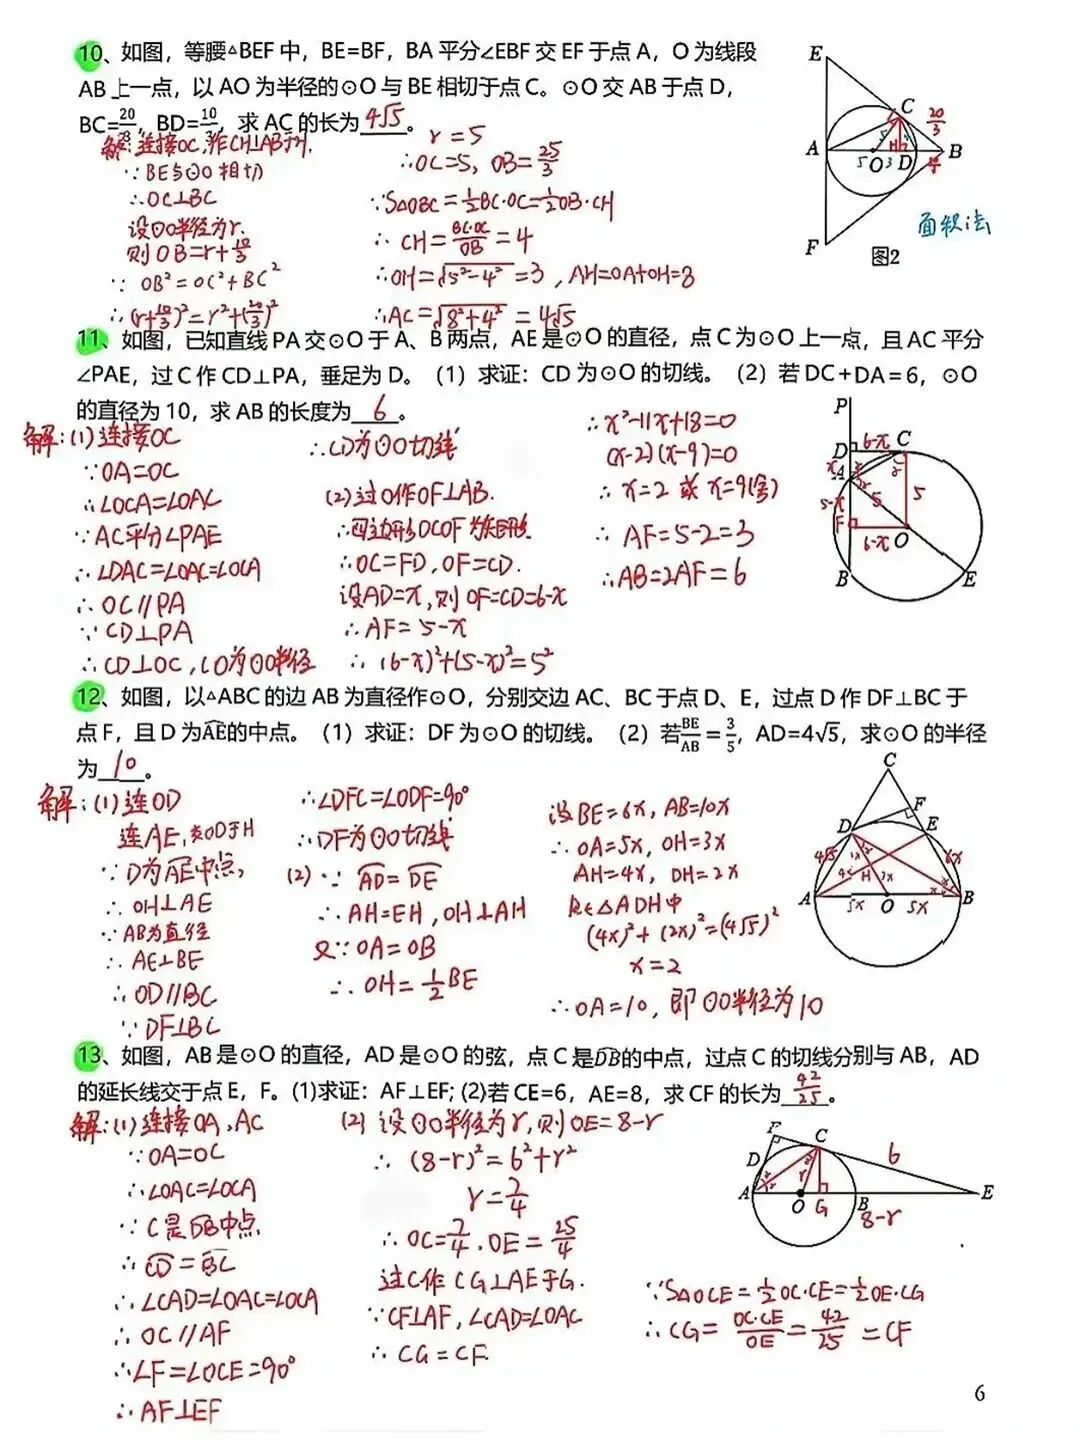 10、如图，等腰△BEF 中，BE=BF，BA 平分∠EBF 交 EF 于点 A，O 为线段
AB 上一点，以 AO 为半径的⊙O 与 BE 相切于点 C。⊙O 交 AB 于点 D，
BC=20/3，BD=10/3，求 AC 的长为 4√5 。
解:连接OC,作CH⊥AB于H.
∵BE与⊙O相切
∴OC⊥BC
设⊙O半径为r.
则OB=r+10/3
∵ OB²=OC²+BC²
∴(r+10/3)²=r²+(20/3)²
r=5
∴OC=5, OB=25/3
∵S△OBC=½BC·OC=½OB·CH
∴ CH=BC·OC/OB=4
∴OH=√5²-4²=3，AH=OA+OH=8
∴AC=√8²+4²=4√5
E
C
20/3
A
5
O
3
H
D
B
F
图2
面积法
11、如图，已知直线 PA 交⊙O 于 A、B 两点，AE 是⊙O 的直径，点 C 为⊙O 上一点，且 AC 平分
∠PAE，过 C 作 CD⊥PA，垂足为 D。（1）求证：CD 为⊙O 的切线。（2）若 DC+DA=6，⊙O
的直径为 10，求 AB 的长度为 6 。
解:(1)连接OC
∵OA=OC
∴∠OCA=∠OAC
∵AC平分∠PAE
∴∠DAC=∠OAC=∠OCA
∴OC∥PA
∵CD⊥PA
∴CD⊥OC,CO为⊙O半径
∴CD为⊙O切线
(2)过O作OF⊥AB.
∴四边形OCDF为矩形
∴OC=FD,OF=CD.
设AD=x,则OF=CD=6-x
∴AF=5-x
∴(6-x)²+(5-x)²=5²
∴x²-11x+18=0
(x-2)(x-9)=0
∴x=2 或 x=9(舍)
∴ AF=5-2=3
∴AB=2AF=6
P
D
6-x
C
x
A
5-x
5
5
F
6-x
O
B
E
12、如图，以△ABC 的边 AB 为直径作⊙O，分别交边 AC、BC 于点 D、E，过点 D 作 DF⊥BC 于
点 F，且 D 为A͡E的中点。（1）求证：DF 为⊙O 的切线。（2）若BE/AB=3/5，AD=4√5，求⊙O 的半径
为 10 。
解:(1)连OD
连AE,交OD于H
∵D为A͡E中点,
∴OH⊥AE
∵AB为直径
∴AE⊥BE
∴OD∥BC
∵DF⊥BC
∴∠DFC=∠ODF=90°
∴DF为⊙O切线
(2)∵A͡D=D͡E
∴AH=EH,OH⊥AH
又∵OA=OB
∴OH=½BE
设BE=6x, AB=10x
∴OA=5x, OH=3x
AH=4x, DH=2x
Rt△ADH中
(4x)²+(2x)²=(4√5)²
x=2
∴OA=10,即⊙O半径为10
C
F
D
E
4√5
6x
H
3x
A
5x
O
5x
B
13、如图，AB 是⊙O 的直径，AD 是⊙O 的弦，点 C 是D͡B的中点，过点 C 的切线分别与 AB，AD
的延长线交于点 E，F。(1)求证：AF⊥EF; (2)若 CE=6，AE=8，求 CF 的长为 42/25 。
解:(1)连接OA,AC
∵OA=OC
∴∠OAC=∠OCA
∵C是D͡B中点
∴C͡D=B͡C
∴∠CAD=∠OAC=∠OCA
∴OC∥AF
∴∠F=∠OCE=90°
∴AF⊥EF
(2)设⊙O半径为r,则OE=8-r
∴(8-r)²=6²+r²
r=7/4
∴OC=7/4, OE=25/4
过C作CG⊥AE于G.
∵CF⊥AF,∠CAD=∠OAC
∴CG=CF
∵S△OCE=½OC·CE=½OE·CG
∴CG=OC·CE/OE=42/25=CF
F
C
D
6
A
O
G
B
8-r
E
6